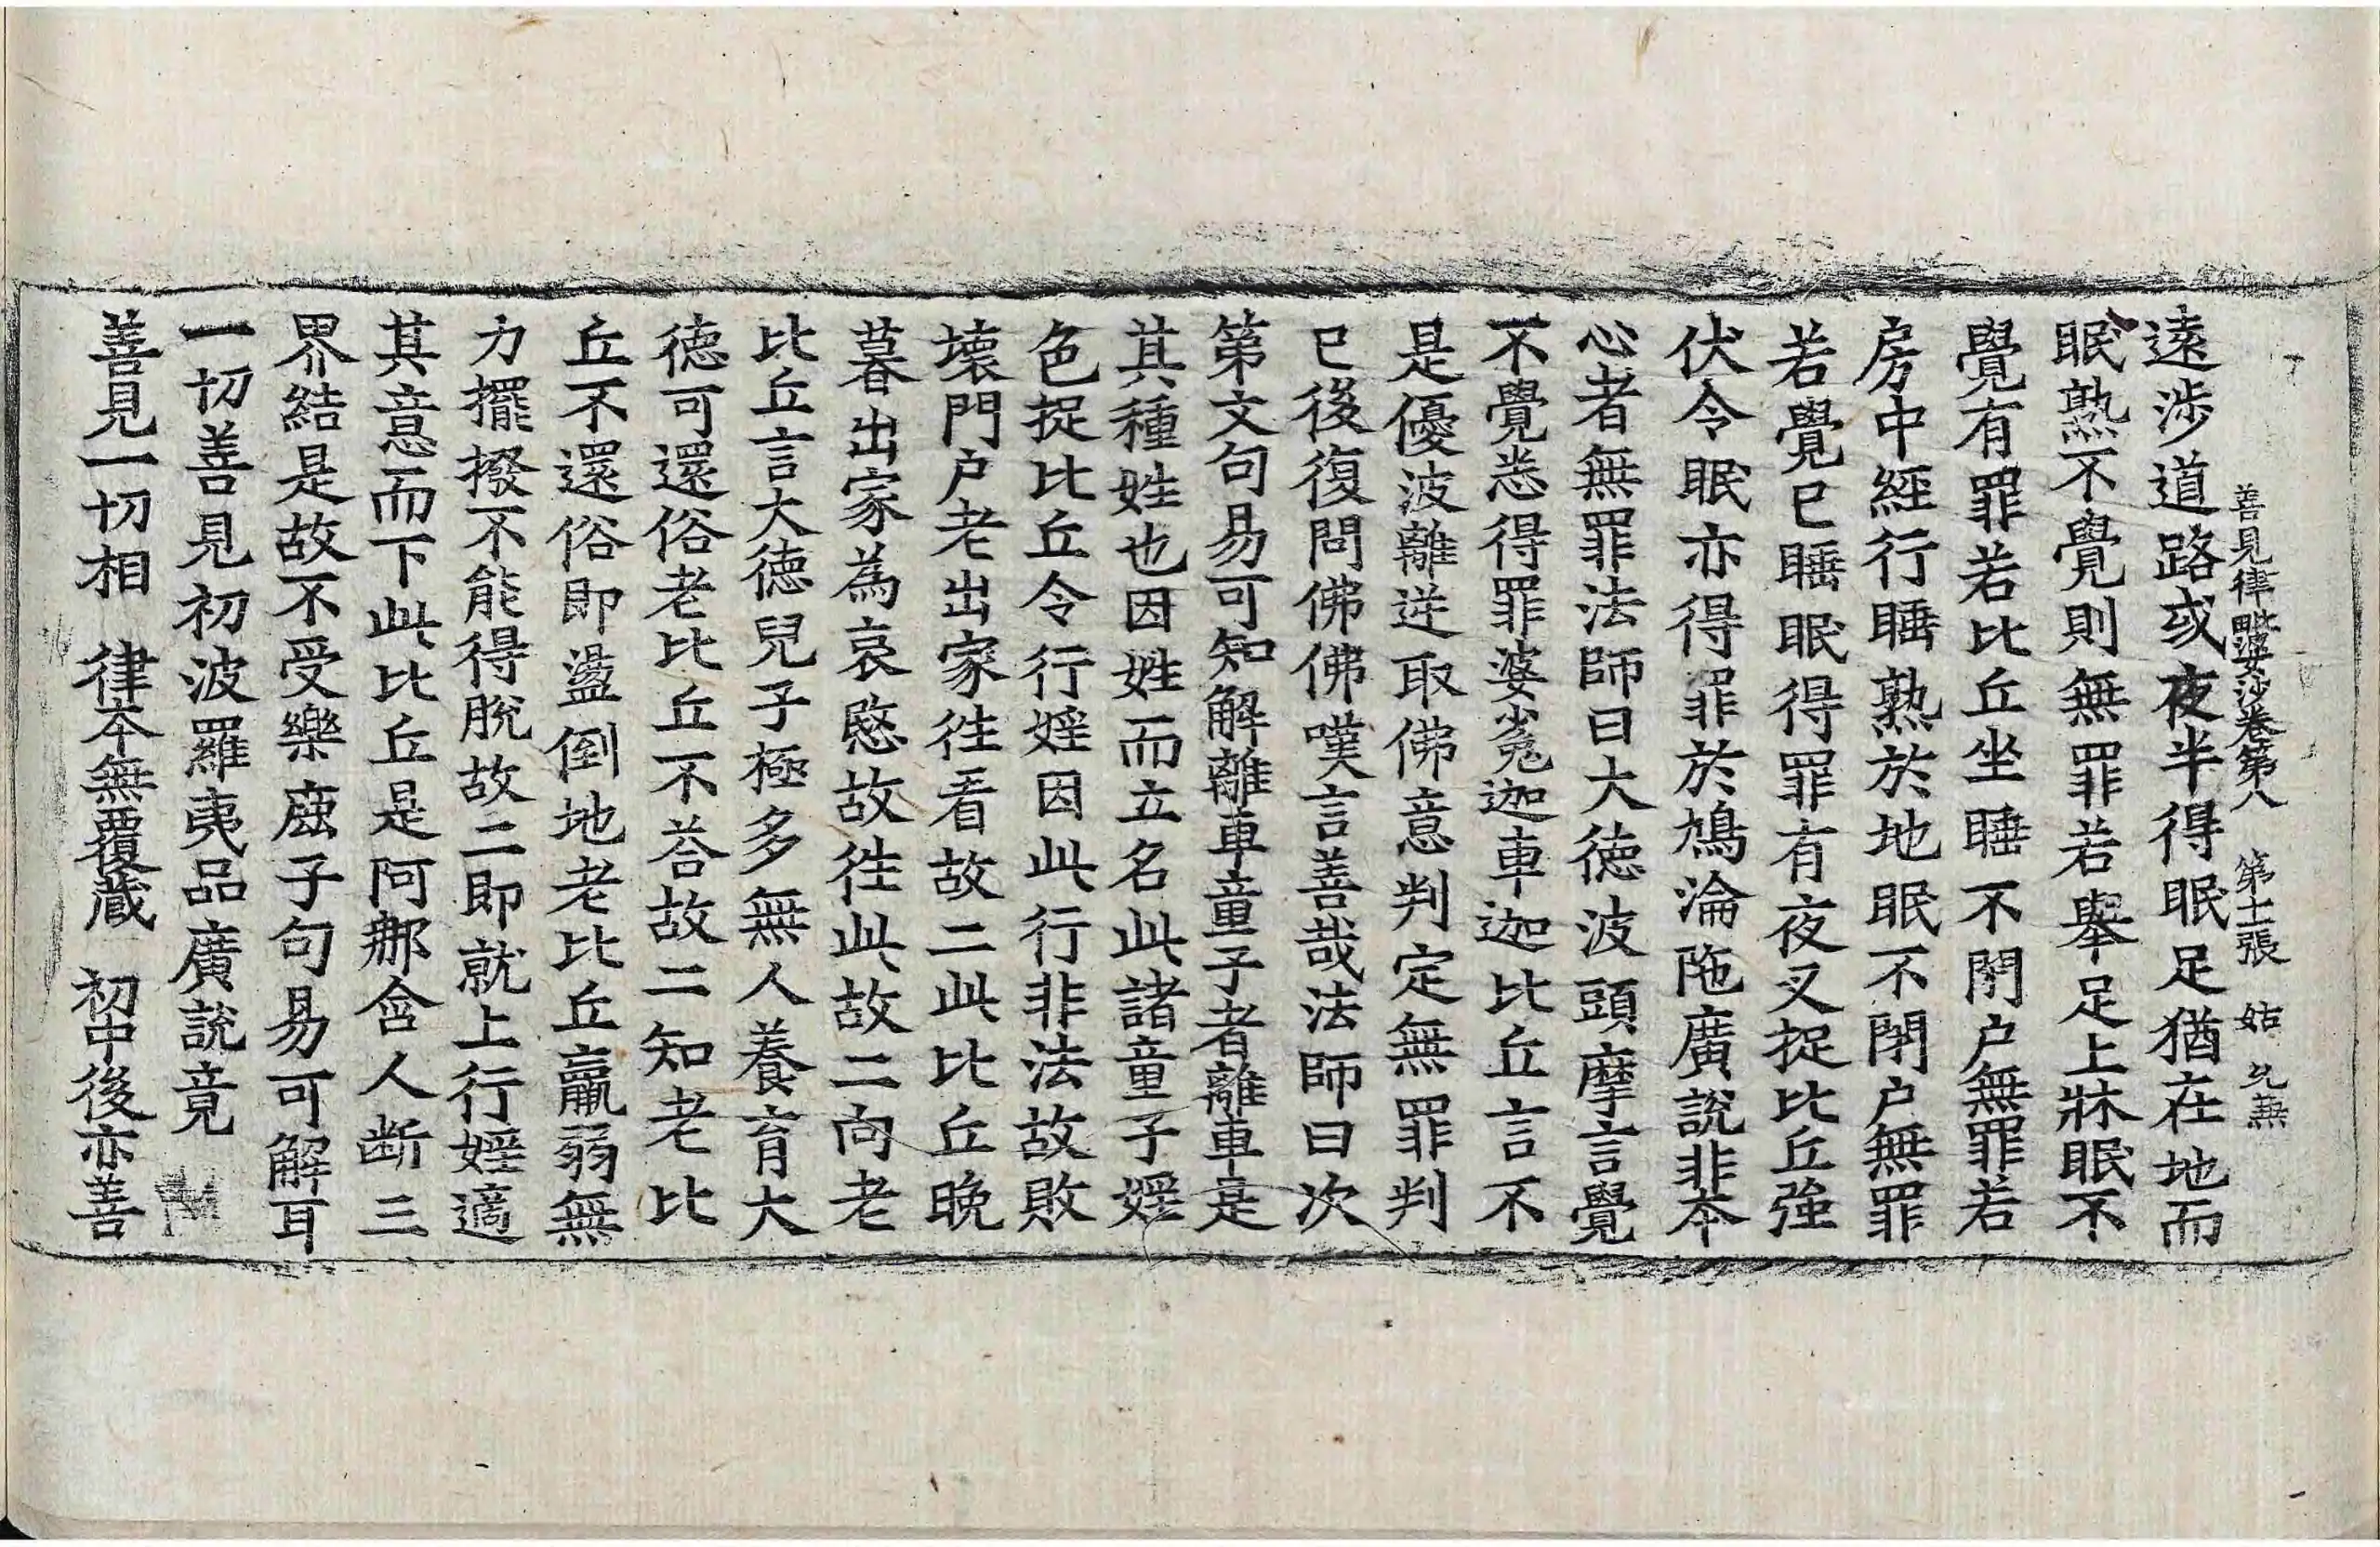 善見律毗婆沙卷第八 第十二張 姑
遠涉道路或夜半得眠足猶在地而
眠熟不覺則無罪若舉足上牀眠不
覺有罪若比丘坐睡不閉户無罪若
房中經行睡熟於地眠不閉户無罪
若覺已睡眠得罪有夜叉捉比丘強
伏令眠亦得罪於鳩淪陁廣說非本
心者無罪法師曰大德波頭摩言覺
不覺悉得罪婆㝹迦車迦比丘言不
是優波離逆取佛意判定無罪判
已後復問佛佛嘆言善哉法師曰次
第文句易可知解離車童子者離車是
其種姓也因姓而立名此諸童子婬
色捉比丘令行婬因此行非法故敗
壞門户老出家徃看故二此比丘晚
暮出家為哀愍故徃此故二向老
比丘言大德兒子極多無人養育大
德可還俗老比丘不荅故二知老比
丘不還俗即盪倒地老比丘羸弱無
力擺撥不能得脫故二即就上行婬適
其意而下此比丘是阿那含人断三
界結是故不受樂鹿子句易可解耳
一切善見初波羅夷品廣說竟
善見一切相 律本無覆蔵 初中後亦善